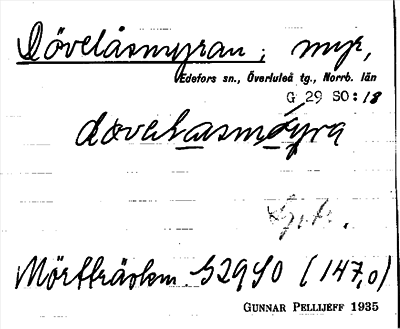 Dövelåsmyran; myr,
Edefors sn., Överluleå tg., Norrb. län
G 29 SO:18
Mörtträsken G29SO (147,0)
GUNNAR PELLIJEFF 1935